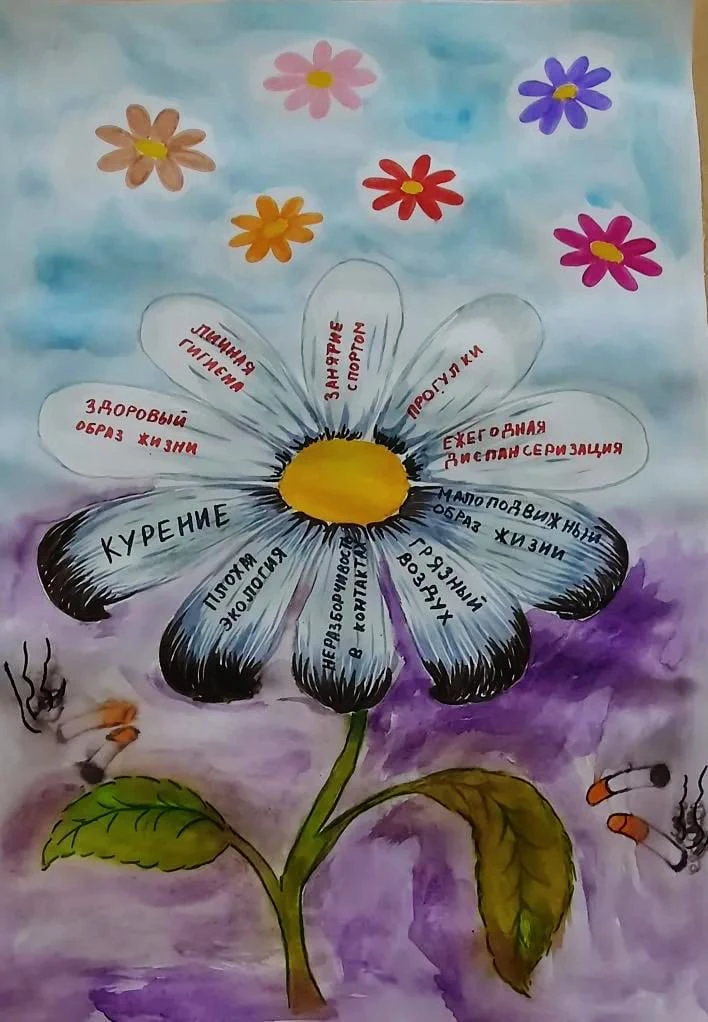 ЛИЧНАЯ
ГИГИЕНА
ЗАНЯТИЕ
СПОРТОМ
ПРОГУЛКИ
ЗДОРОВЫЙ
ОБРАЗ ЖИЗНИ
ЕЖЕГОДНАЯ
ДИСПАНСЕРИЗАЦИЯ
КУРЕНИЕ
ПЛОХАЯ
ЭКОЛОГИЯ
НЕРАЗБОРЧИВОСТЬ
В КОНТАКТАХ
ГРЯЗНЫЙ
ВОЗДУХ
МАЛОПОДВИЖНЫЙ
ОБРАЗ ЖИЗНИ